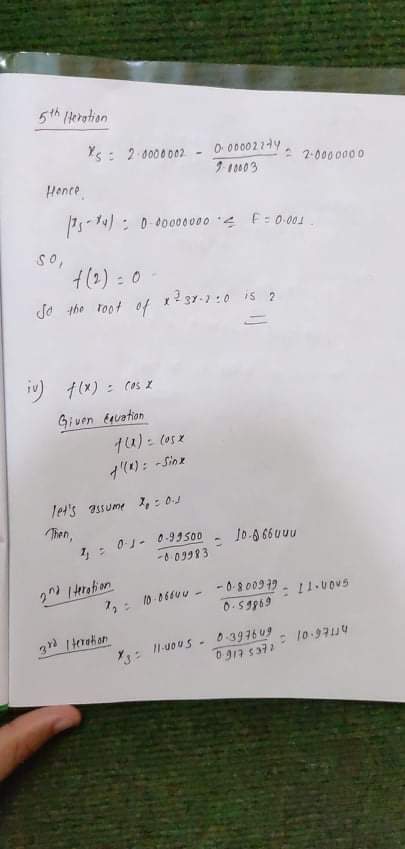 5th Iteration
x5 = 2.0000002 - 0.00002274/9.00003 = 2.0000000
Hence,
|x5 - x4| = 0.00000000 ≤ E = 0.001.
so,
f(2) = 0
So the root of x³-3x-2=0 is 2
iv) f(x) = cos x
Given Equation
f(x) = cos x
f'(x) = -Sinx
let's assume x0 = 0.1
Then,
x1 = 0.1 - 0.99500/-0.09983 = 10.066444
2nd Iteration
x2 = 10.06644 - -0.800979/0.59869 = 11.4045
3rd Iteration
x3 = 11.4045 - 0.397649/0.9175372 = 10.97114